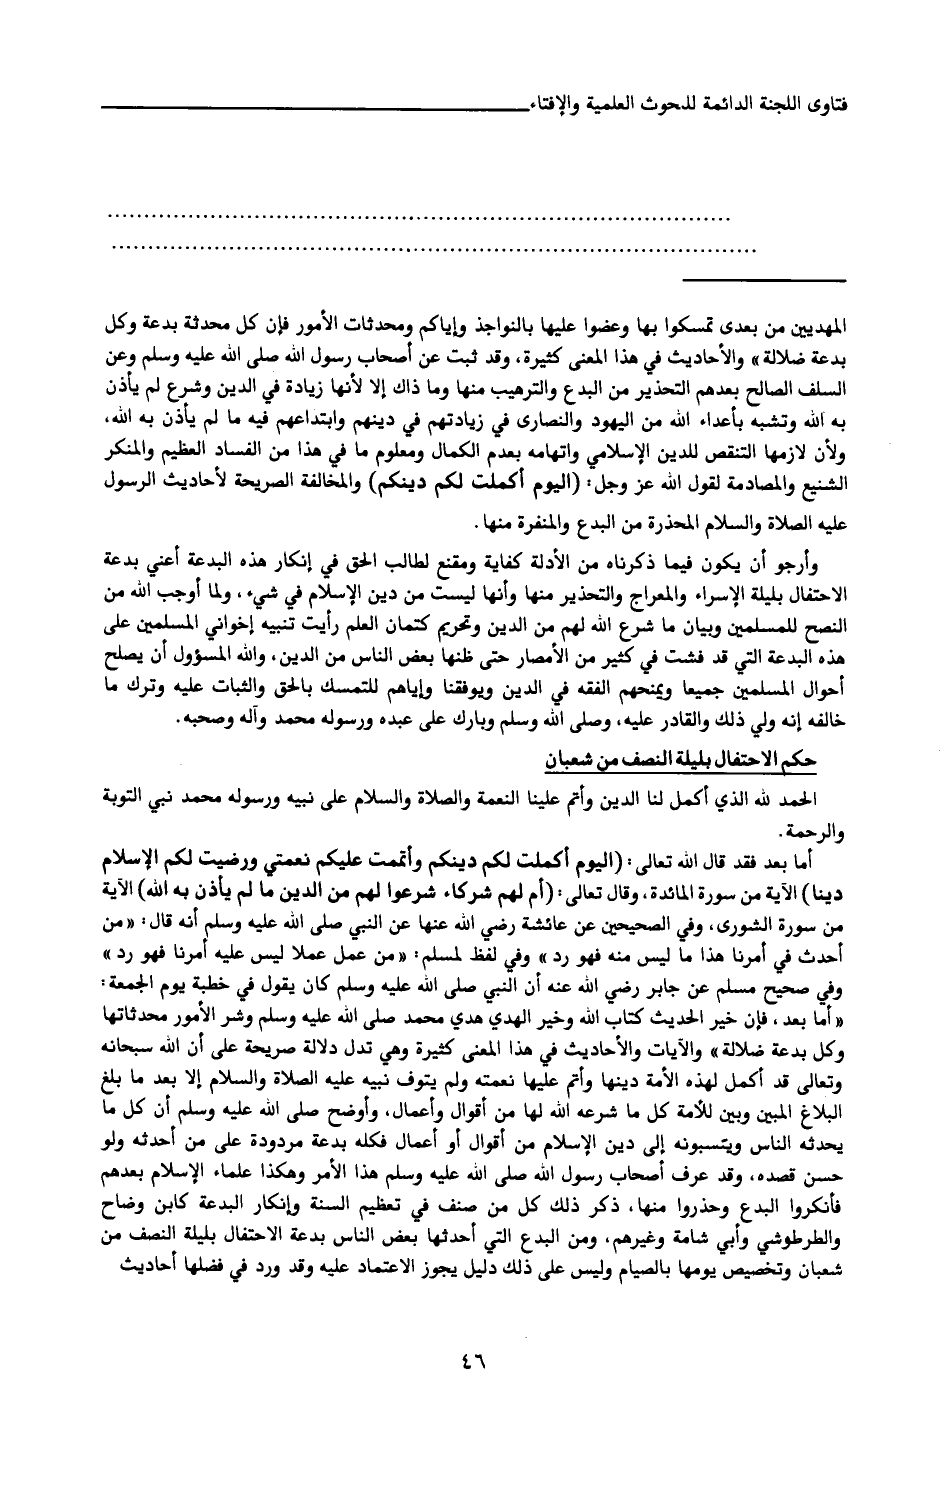 فتاوى اللجنة الدائمة للبحوث العلمية والإفتاء
................................................................................
................................................................................
المهديين من بعدى تمسكوا بها وعضوا عليها بالنواجذ وإياكم ومحدثات الأمور فإن كل محدثة بدعة وكل
بدعة ضلالة» والأحاديث في هذا المعنى كثيرة، وقد ثبت عن أصحاب رسول الله صلى الله عليه وسلم وعن
السلف الصالح بعدهم التحذير من البدع والترهيب منها وما ذاك إلا لأنها زيادة في الدين وشرع لم يأذن
به الله وتشبه بأعداء الله من اليهود والنصارى في زيادتهم في دينهم وابتداعهم فيه ما لم يأذن به الله،
ولأن لازمها التنقص للدين الإسلامي واتهامه بعدم الكمال ومعلوم ما في هذا من الفساد العظيم والمنكر
الشنيع والمصادمة لقول الله عز وجل: (اليوم أكملت لكم دينكم) والمخالفة الصريحة لأحاديث الرسول
عليه الصلاة والسلام المحذرة من البدع والمنفرة منها.
وأرجو أن يكون فيما ذكرناه من الأدلة كفاية ومقنع لطالب الحق في إنكار هذه البدعة أعني بدعة
الاحتفال بليلة الإسراء والمعراج والتحذير منها وأنها ليست من دين الإسلام في شيء، ولما أوجب الله من
النصح للمسلمين وبيان ما شرع الله لهم من الدين وتحريم كتمان العلم رأيت تنبيه إخواني المسلمين على
هذه البدعة التي قد فشت في كثير من الأمصار حتى ظنها بعض الناس من الدين، والله المسؤول أن يصلح
أحوال المسلمين جميعا ويمنحهم الفقه في الدين ويوفقنا وإياهم للتمسك بالحق والثبات عليه وترك ما
خالفه إنه ولي ذلك والقادر عليه، وصلى الله وسلم وبارك على عبده ورسوله محمد وآله وصحبه.
حكم الاحتفال بليلة النصف من شعبان
الحمد لله الذي أكمل لنا الدين وأتم علينا النعمة والصلاة والسلام على نبيه ورسوله محمد نبي التوبة
والرحمة.
أما بعد فقد قال الله تعالى: (اليوم أكملت لكم دينكم وأتممت عليكم نعمتي ورضيت لكم الإسلام
دينا) الآية من سورة المائدة، وقال تعالى: (أم لهم شركاء شرعوا لهم من الدين ما لم يأذن به الله) الآية
من سورة الشورى، وفي الصحيحين عن عائشة رضي الله عنها عن النبي صلى الله عليه وسلم أنه قال: «من
أحدث في أمرنا هذا ما ليس منه فهو رد» وفي لفظ لمسلم: «من عمل عملا ليس عليه أمرنا فهو رد»
وفي صحيح مسلم عن جابر رضي الله عنه أن النبي صلى الله عليه وسلم كان يقول في خطبة يوم الجمعة:
«أما بعد، فإن خير الحديث كتاب الله وخير الهدي هدي محمد صلى الله عليه وسلم وشر الأمور محدثاتها
وكل بدعة ضلالة» والآيات والأحاديث في هذا المعنى كثيرة وهي تدل دلالة صريحة على أن الله سبحانه
وتعالى قد أكمل لهذه الأمة دينها وأتم عليها نعمته ولم يتوف نبيه عليه الصلاة والسلام إلا بعد ما بلغ
البلاغ المبين وبين للأمة كل ما شرعه الله لها من أقوال وأعمال، وأوضح صلى الله عليه وسلم أن كل ما
يحدثه الناس وينسبونه إلى دين الإسلام من أقوال أو أعمال فكله بدعة مردودة على من أحدثه ولو
حسن قصده، وقد عرف أصحاب رسول الله صلى الله عليه وسلم هذا الأمر وهكذا علماء الإسلام بعدهم
فأنكروا البدع وحذروا منها، ذكر ذلك كل من صنف في تعظيم السنة وإنكار البدعة كابن وضاح
والطرطوشي وأبي شامة وغيرهم، ومن البدع التي أحدثها بعض الناس بدعة الاحتفال بليلة النصف من
شعبان وتخصيص يومها بالصيام وليس على ذلك دليل يجوز الاعتماد عليه وقد ورد في فضلها أحاديث
٤٦